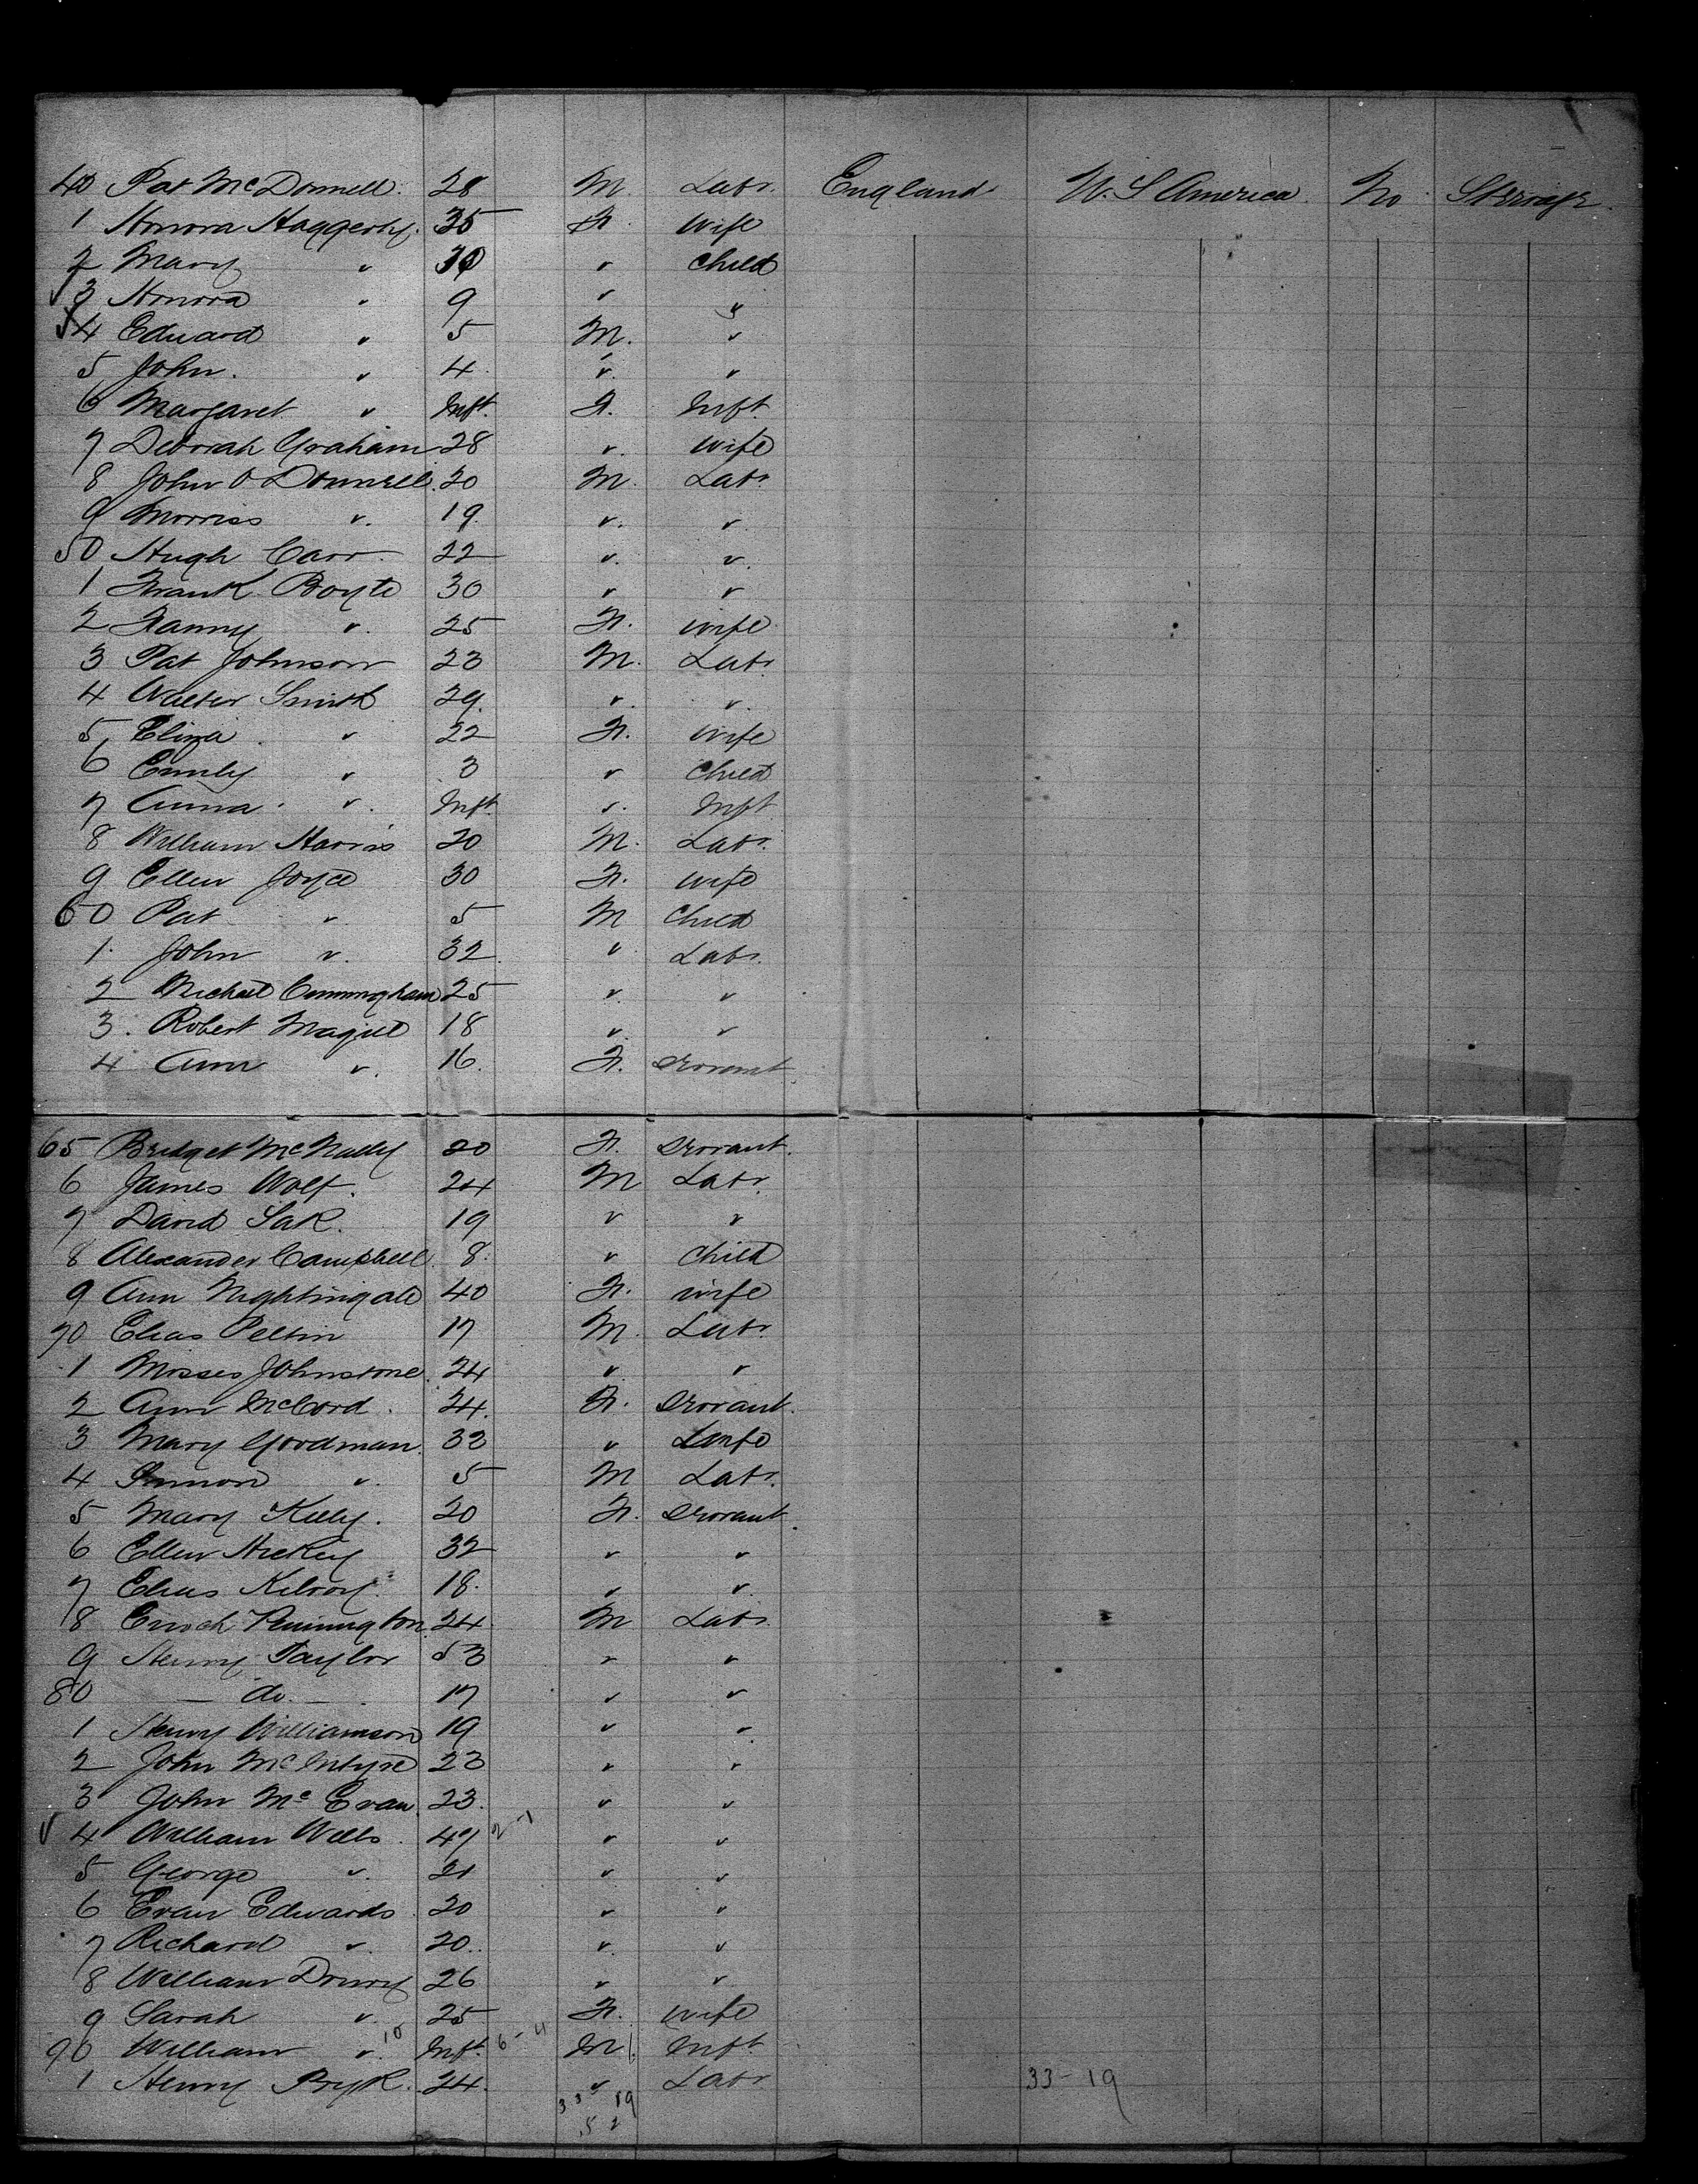 40 Pat McDonnell. 28 M. Labr. England U. S America. No Steerage.
1 Honora Haggerty. 35 F. Wife
2 Mary " " Child
3 Honora " 9 " "
4 Edward " 5 M. "
5 John. " 4. " "
6 Margaret " Inft. F. Inft.
7 Deborah Graham 28 " Wife
8 John O Donnell. 20 M. Labr.
9 Morriss " 19. " "
50 Hugh Carr. 22 " "
1 Frank Boyle 30 " "
2 Fanny " 25 F. Wife
3 Pat Johnson 23 M. Labr
4 Walter Smith 29. " "
5 Eliza " 22 F. Wife
6 Emily " 3 " Child
7 Anna " Inft. " Inft
8 William Harris 20 M. Labr.
9 Ellen Joyce 30 F. Wife
60 Pat " 5 M Child
1. John " 32. " Labr.
2 Michael Cunningham 25 " "
3. Robert Magill 18 " "
4 Ann " 16. F. Servant.
65 Bridget McNally 20 F. Servant.
6 James Wolf. 24 M Labr.
7 David Sak. 19 " "
8 Alexander Campbell. 8. " Child
9 Ann Nightingale 40 F. Wife
70 Elias Peltin 17 M. Labr.
1 Mosses Johnstone. 24 " "
2 Ann McCord. 24. F. Servant.
3 Mary Goodman. 32 " Wife
4 Simon " 5 M Labr.
5 Mary Kelly. 20 F. Servant.
6 Ellen Hickey 32 " "
7 Elias Kilroy. 18. " "
8 Enoch Pennington 24. M Labr.
9 Henry Taylor 53 " "
80 — do. — 17 " "
1 Henry Williamson 19 " "
2 John McIntyre 23 " "
3 John Mc Evan. 23. " "
4 William Wells. 47 2-7 " "
5 George " 21 " "
6 Evan Edwards. 20 " "
7 Richard " 20. " "
8 William Drury 26 " "
9 Sarah " 25 F. Wife
90 William " 10 Inft. 6-4 M. Inft
1 Henry Pryk. 24. " Labr 33-19
33 19
52